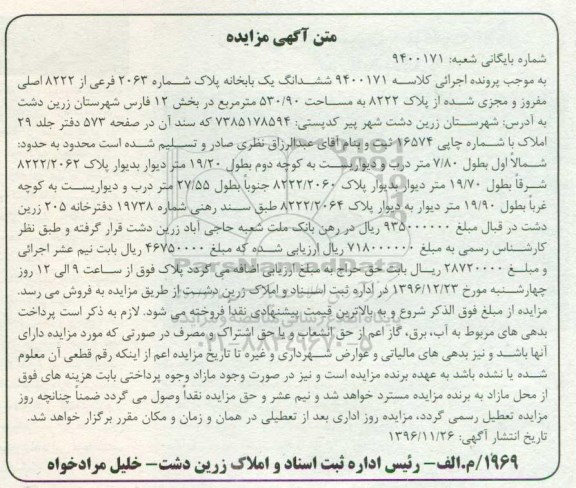 متن آگهی مزایده
شماره بایگانی شعبه: ۹۴۰۰۱۷۱
به موجب پرونده اجرائی کلاسه ۹۴۰۰۱۷۱ ششدانگ یک بابخانه پلاک شماره ۲۰۶۳ فرعی از ۸۲۲۲ اصلی
مفروز و مجزی شده از پلاک ۸۲۲۲ به مساحت ۵۳۰/۹۰ مترمربع در بخش ۱۲ فارس شهرستان زرین دشت
به آدرس: شهرستان زرین دشت شهر پیر کدپستی: ۷۳۸۵۱۷۸۵۹۴ که سند آن در صفحه ۵۷۳ دفتر جلد ۲۹
املاک با شماره چاپی ۱۶۵۷۴ ثبت و بنام آقای عبدالرزاق نظری صادر و تسلیم شده است محدود به حدود:
شمالاً اول بطول ۷/۸۰ متر درب و دیواریست به کوچه دوم بطول ۱۹/۲۰ متر دیوار بدیوار پلاک ۸۲۲۲/۲۰۶۲
شرقاً بطول ۱۹/۷۰ متر دیوار بدیوار پلاک ۸۲۲۲/۲۰۶۰ جنوباً بطول ۲۷/۵۵ متر درب و دیواریست به کوچه
غرباً بطول ۱۹/۹۰ متر دیوار به دیوار پلاک ۸۲۲۲/۲۰۶۴ طبق سند رهنی شماره ۱۹۷۳۸ دفترخانه ۲۰۵ زرین
دشت در قبال مبلغ ۹۳۵۰۰۰۰۰۰ ریال در رهن بانک ملت شعبه حاجی آباد زرین دشت قرار گرفته و طبق نظر
کارشناس رسمی به مبلغ ۷۱۸۰۰۰۰۰۰ ریال ارزیابی شده که مبلغ ۴۶۷۵۰۰۰۰ ریال بابت نیم عشر اجرائی
و مبلغ ۲۸۷۲۰۰۰۰ ریال بابت حق حراج به مبلغ ارزیابی اضافه می گردد پلاک فوق از ساعت ۹ الی ۱۲ روز
چهارشنبه مورخ ۱۳۹۶/۱۲/۲۳ در اداره ثبت اسناد و املاک زرین دشت از طریق مزایده به فروش می رسد.
مزایده از مبلغ فوق الذکر شروع و به بالاترین قیمت پیشنهادی نقداً فروخته می شود. لازم به ذکر است پرداخت
بدهی های مربوط به آب، برق، گاز اعم از حق انشعاب و یا حق اشتراک و مصرف در صورتی که مورد مزایده دارای
آنها باشد و نیز بدهی های مالیاتی و عوارض شهرداری و غیره تا تاریخ مزایده اعم از اینکه رقم قطعی آن معلوم
شده یا نشده باشد به عهده برنده مزایده است و نیز در صورت وجود مازاد وجوه پرداختی بابت هزینه های فوق
از محل مازاد به برنده مزایده مسترد خواهد شد و نیم عشر و حق مزایده نقداً وصول می گردد ضمناً چنانچه روز
مزایده تعطیل رسمی گردد، مزایده روز اداری بعد از تعطیلی در همان و زمان و مکان مقرر برگزار خواهد شد.
تاریخ انتشار آگهی: ۱۳۹۶/۱۱/۲۶
۱۹۶۹/م.الف- رئیس اداره ثبت اسناد و املاک زرین دشت- خلیل مرادخواه
ParsNamadData
۰۲۱-۸۸۳۴۹۶۷۰-۵